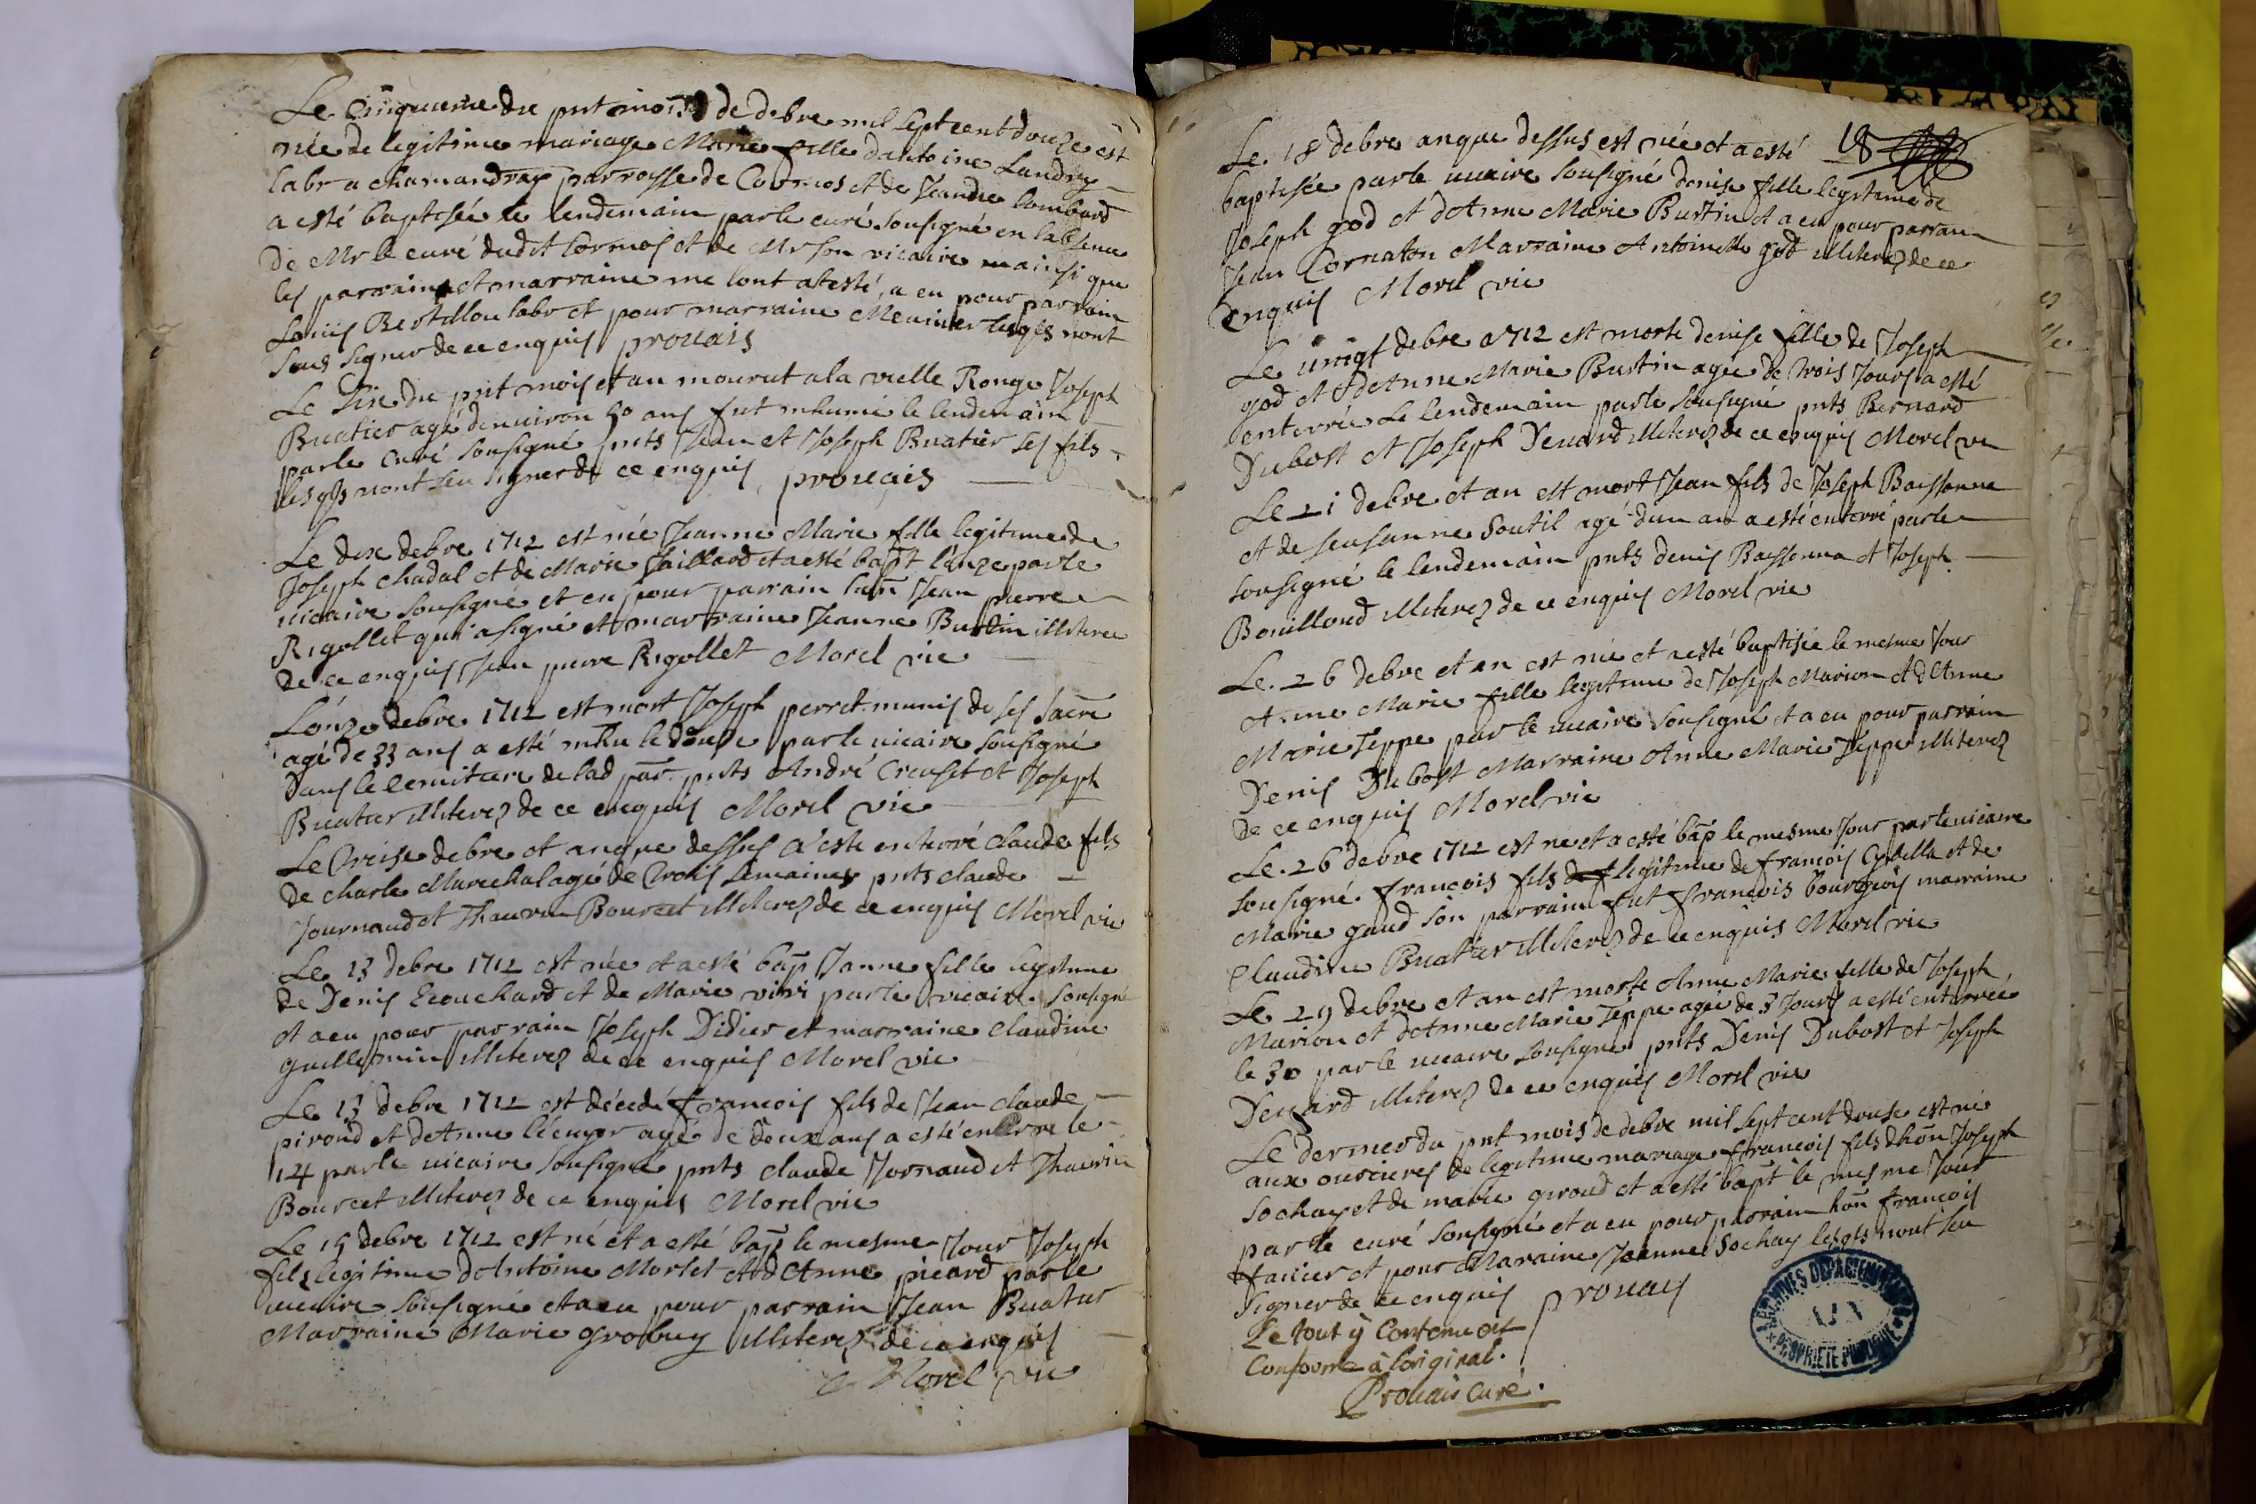 Le Cinquieme du pnt mois de debre mil sept cent douze est
née de legitime mariage Marie fille dantoine Landry
labr a chamandray parroisse de Cormos et de Jeanne lombard
a esté baptisée le lendemain par le curé sousigné en labsence
de Mr le curé dudit Cormos et de Mr son vicaire ainsi que
les parrain et marraine me lont atesté, a eu pour parrain
Louis Bertillon labr et pour marraine Meunier lesqls nont
sceu signer de ce enquis prouais
Le Six du pnt mois et an mourut a la vielle Ronge Joseph
Buatier agé denuiron 50 ans fut inhumé le lendemain
par le curé sousigné pnts Jean et Joseph Buatier ses fils
lesqls nont sceu signer de ce enquis prouais
Le dix debre 1712 est née Jeanne Marie fille legitime de
Joseph chadal et de Marie Paillard et a esté bapt lonze par le
uicaire sousigné et eu pour parrain hon Jean pierre
Rigollet qui a signé et marraine Jeanne Burtin illiteree
de ce enquis Jean pierre Rigollet Morel vic
Lonze debre 1712 est mort Joseph perret munis de ses sacre
agé de 33 ans a esté inhu le douze par le uicaire sousigné
dans le cemitiere de lad par pnts André Creuset et Joseph
Buatier illiterez de ce enquis Morel vic
Le treise debre et an que dessus a este enterré claude fils
de charle Marechal agé de trois semaines pnts claude
Journaud et Thauvin Bourcet illiterez de ce enquis Morel vic
Le 13 debre 1712 est née et a esté bap Janne fille legitime
de Denis Ecouchard et de Marie vivi par le vicaire sousigné
et a eu pour parrain Joseph Didier et marraine claudine
guillemin illiterez de ce enquis Morel vic
Le 13 debre 1712 est décedé francois fils de Jean claude
piroud et dAnne leenyer agé de deux ans a esté enterre le
14 par le uicaire sousigné pnts claude Jornaud et Thauvin
Bourcet illiterez de ce enquis Morel vic
Le 15 debre 1712 est né et a esté bap le mesme Jour Joseph
fils legitime dAntoine Morlet et dAnne picard par le
uicaire sousigné et a eu pour parrain Jean Buatier
Marraine Marie grobuy illiterez de ce enquis
Morel vic
18
Le 18 debre an que dessus est née et a esté
baptisée par le uicaire sousigné denise fille legitime de
Joseph god et dAnne Marie Burtin et a eu pour parrain
Jean Cornaton Marraine Antoinette god illiterez de ce
enquis Morel vic
Le uingt debre 1712 est morte denise fille de Joseph
god et dAnne Marie Burtin agée de trois Jours a esté
enterrée le lendemain par le sousigné pnts Bernard
Dubost et Joseph Deuard illiterez de ce enquis Morel vic
Le 21 debre et an est mort Jean fils de Joseph Baissonna
et de Susanne Soutil agé dun an a esté enterré par le
sousigné le lendemain pnts denis Baissonna et Joseph
Bouilloud illiterez de ce enquis Morel vic
Le 26 debre et an est née et a esté baptisée le mesme Jour
Anne Marie fille legitime de Joseph Marion et dAnne
Marie Teppe par le uicaire sousigné et a eu pour parrain
Denis Dubost Marraine Anne Marie Teppe illiterez
de ce enquis Morel vic
Le 26 debre 1712 est ne et a esté bap le mesme Jour par le uicaire
sousigné francois fils legitime de francois Cybella et de
Marie gaud son parrain fut francois bourgeois marraine
Claudine Buatier illiterez de ce enquis Morel vic
Le 29 debre et an est morte Anne Marie fille de Joseph
Marion et dAnne Marie Teppe agée de 3 Jours a esté enterrée
le 30 par le uicaire sousigné pnts Denis Dubost et Joseph
Deuard illiterez de ce enquis Morel vic
Le dernier du pnt mois de debre mil sept cent douse est né
aux oursieres de legitime mariage francois fils dhon Joseph
Sochay et de marie giroud et a esté bapt le mesme Jour
par le curé sousigné et a eu pour parrain hon francois
fauier et pour Maraine Jeanne Sochay lesqls nont sceu
Signer de ce enquis prouais
Le tout y Contenu est
Conforme à l'original.
Prouais Curé.
ARCHIVES DEPARTEMENTALES
AIN
PROPRIÉTÉ PUBLIQUE